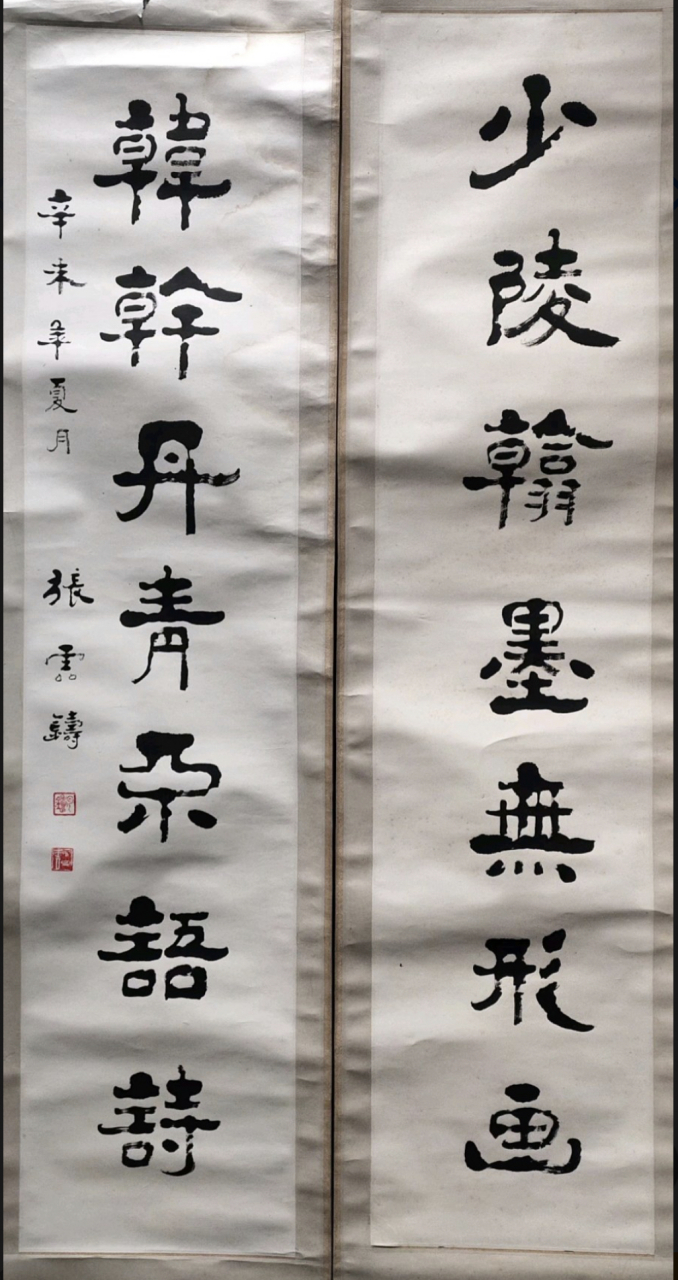 少陵翰墨無形画
韓幹丹青不語詩
辛未年夏月
張鑄